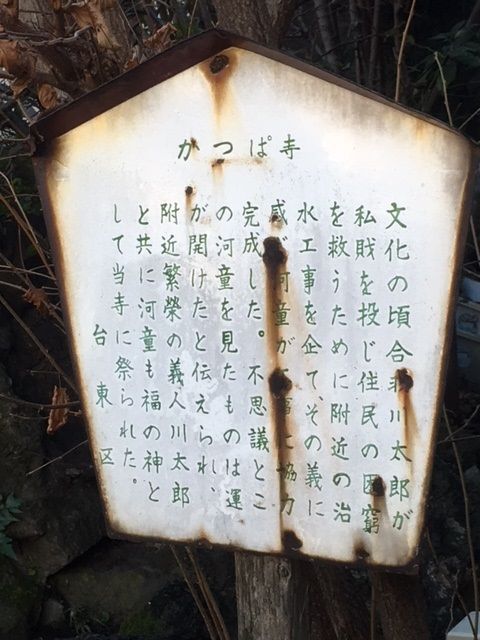 かつぱ寺
文化の頃合羽川太郎が
私財を投じ住民の困窮
を救うために附近の治
水工事を企て、その義に
感じ河童が工事に協力
完成した。不思議とこ
の河童を見たものは運
が開けたと伝えられ、
附近繁榮の義人川太郎
と共に河童も福の神と
して当寺に祭られた。
台東区